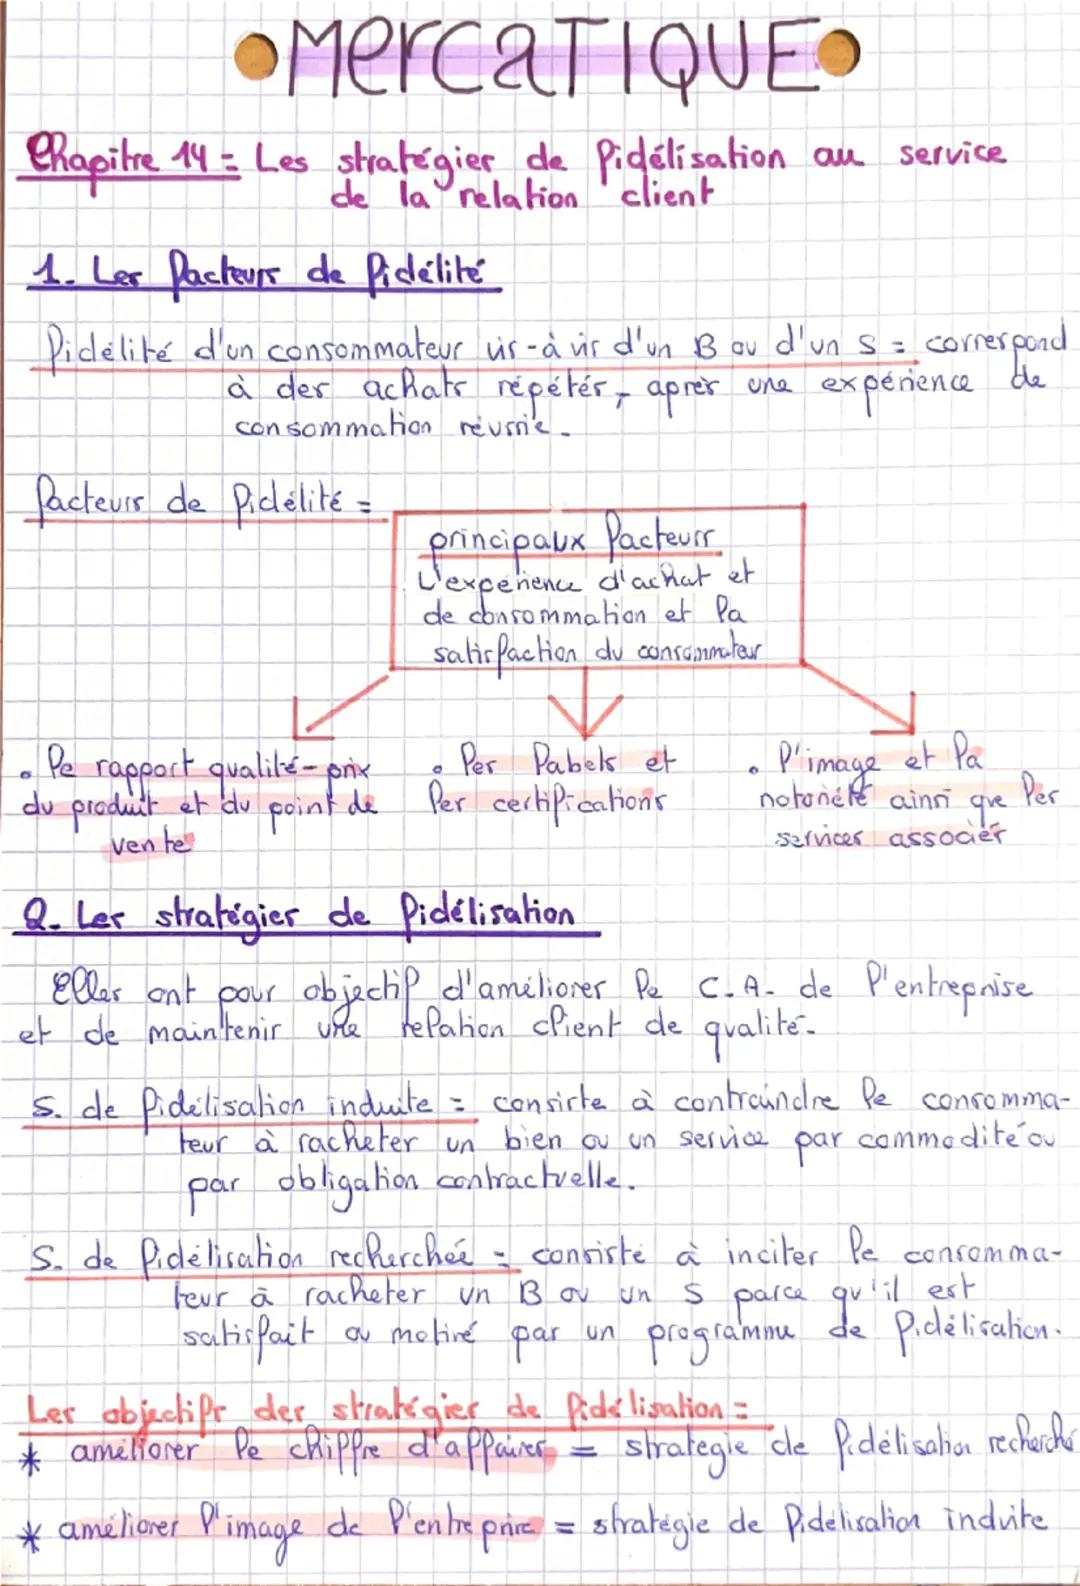 MercaTIQUE
Chapitre 14 = Les stratégies de fidélisation au service
de la relation client
1. Les facteurs de fidélité
fidélité d'un consommateur vis-à vis d'un B ou d'un S = correspond
à des achats répétés, après une expérience de
consommation réussie.
facteurs de fidélité =
principaux facteurs
L'expérience d'achat et
de consommation et la
satisfaction du consommateur
• le rapport qualité-prix
du produit et du point de
vente
• les labels et
les certifications
• l'image et la
notoriété ainsi que les
services associés
2. Les stratégies de fidélisation
Elles ont pour objectif d'améliorer le C.A. de l'entreprise
et de maintenir une relation client de qualité.
S. de fidélisation induite = consiste à contraindre le consomma-
teur à racheter un bien ou un service par commodité ou
par obligation contractuelle.
S. de fidélisation recherchée = consiste à inciter le consomma-
teur à racheter un B ou un S parce qu'il est
satisfait ou motivé par un programme de fidélisation.
Les objectifs des stratégies de fidélisation =
* améliorer le chiffre d'affaires = strategie de fidélisation recherché
* améliorer l'image de l'entreprise = stratégie de fidélisation induite